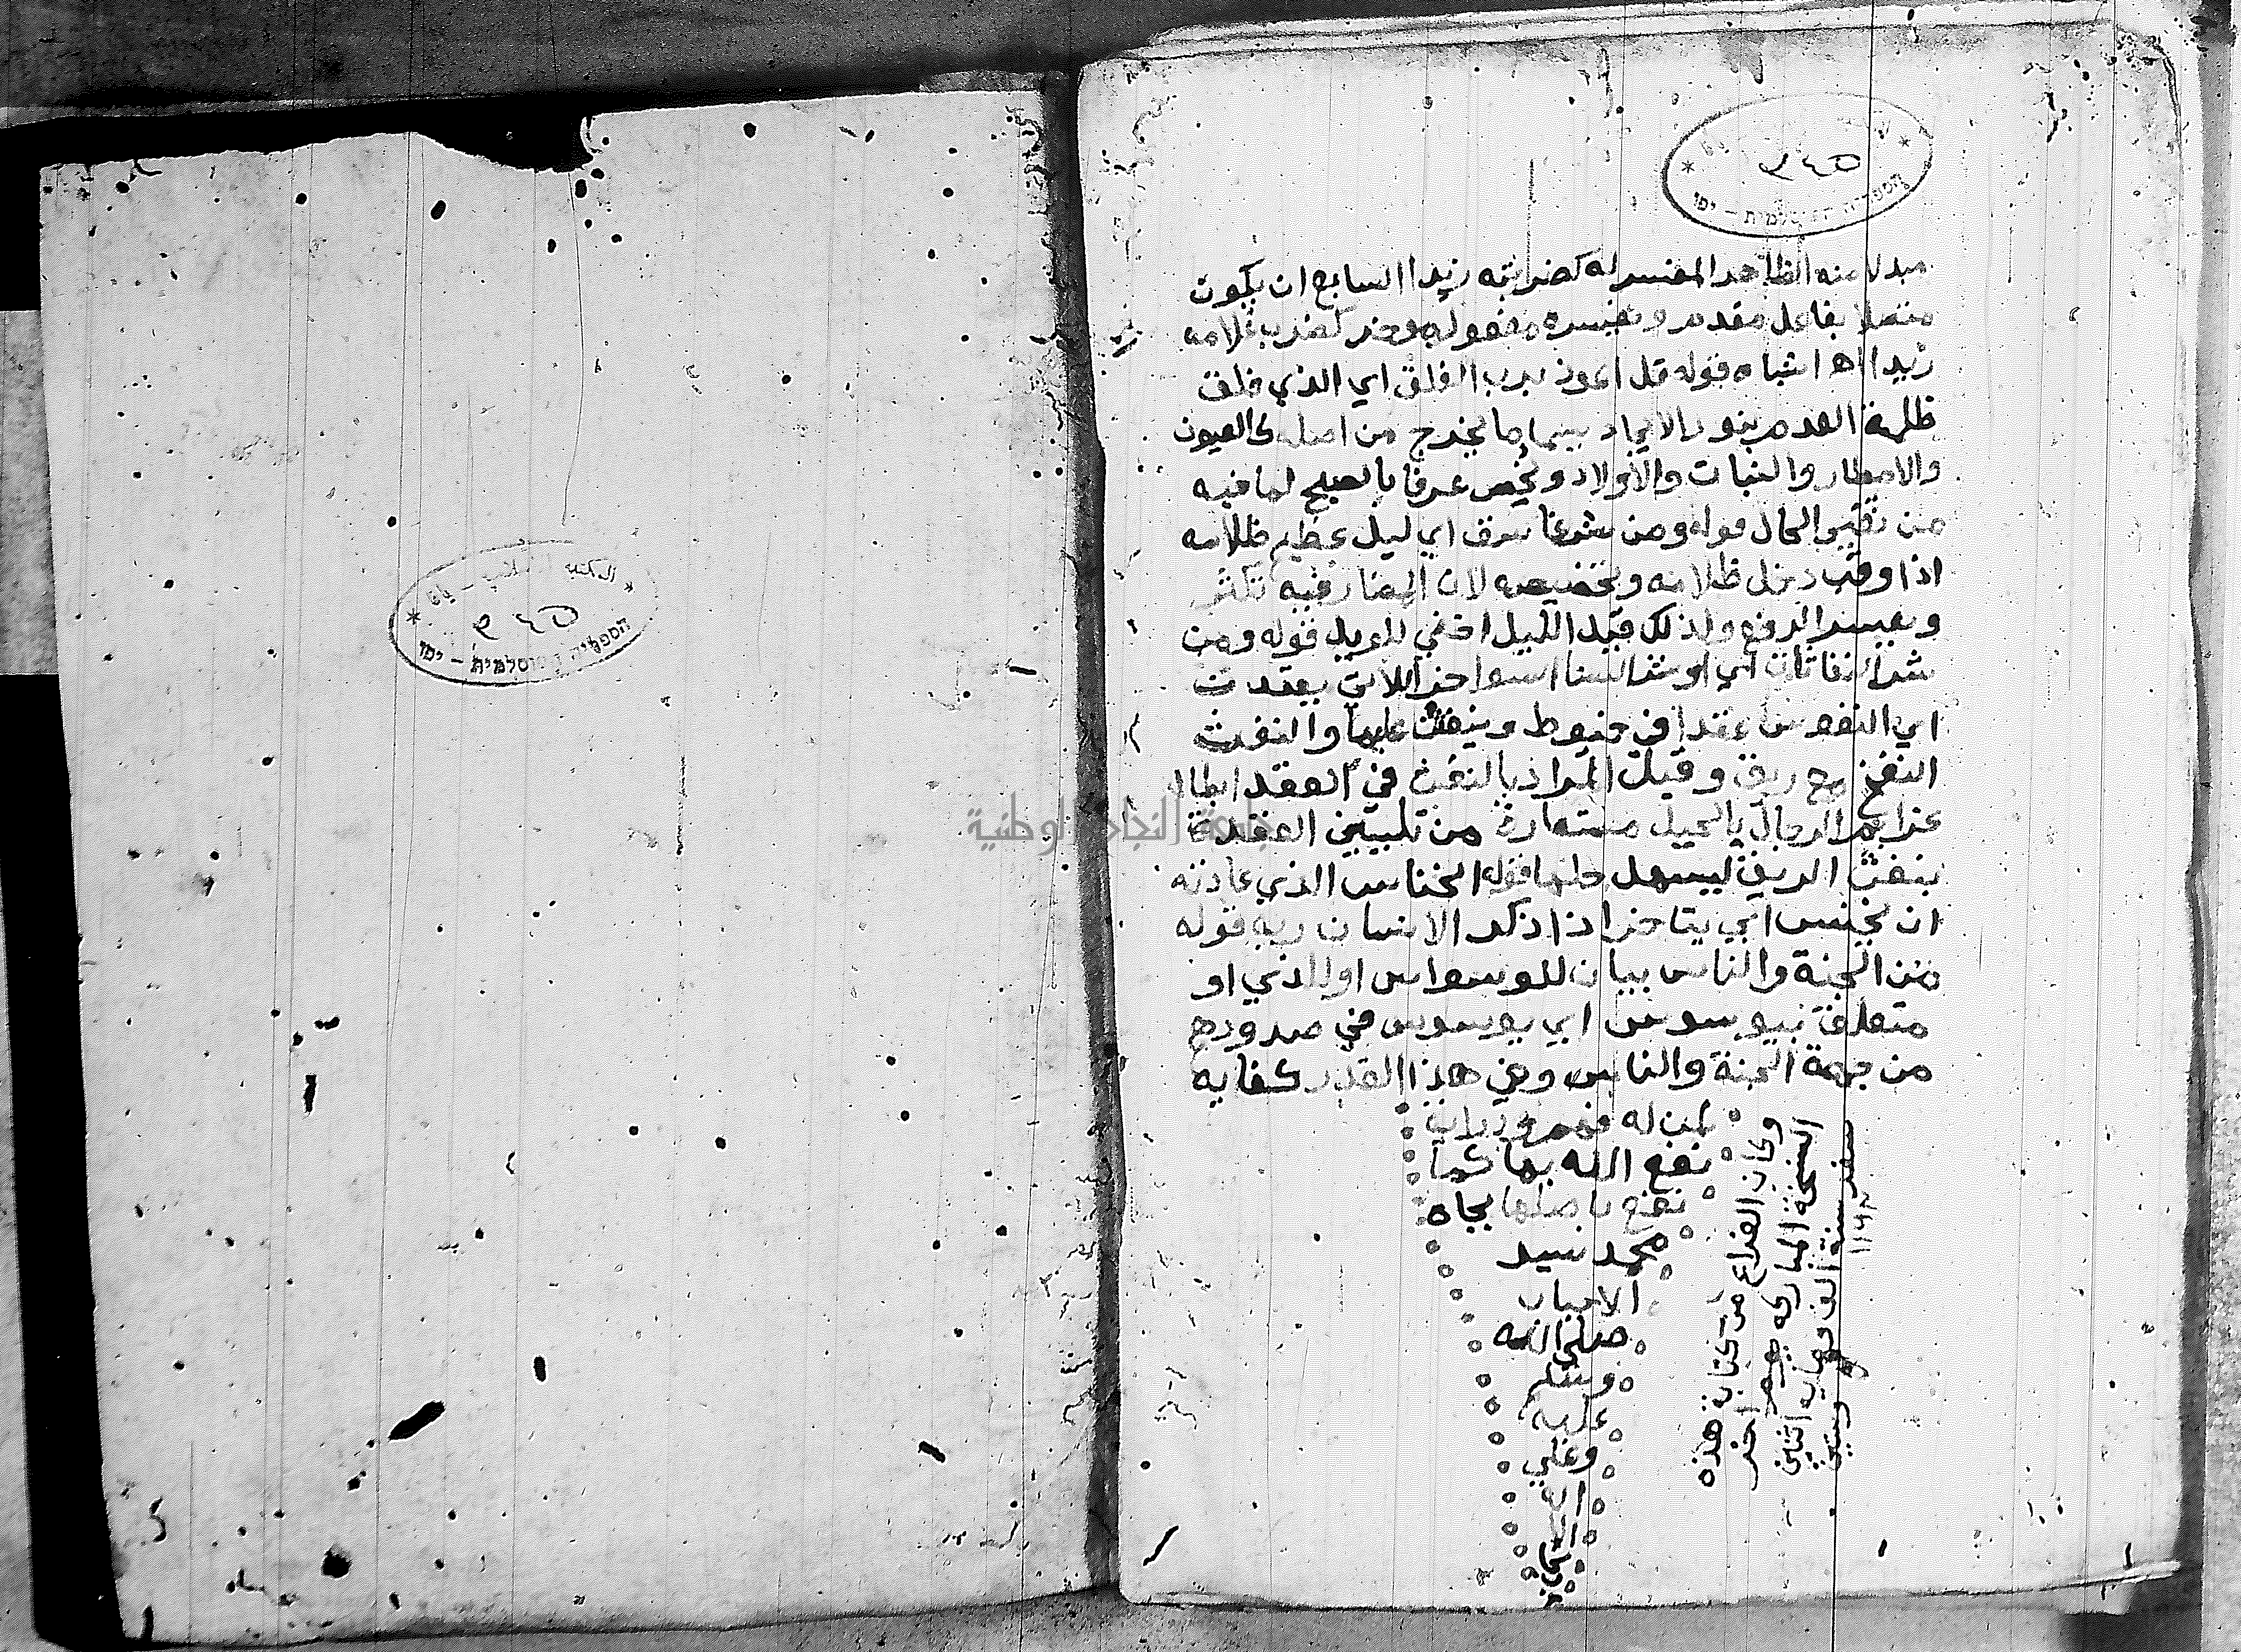 مبدلا منه الظاهر المفسر له كضربته زيدا السابع ان يكون
متصلا بفاعل مقدم ومفسره مفعول موخر كضرب غلامه
زيدا اه اشباه قوله قل اعوذ برب الفلق اي الذي فلق
ظلمة العدم بنور الايجاد سيما ما يخرج من اصله كالعيون
والامطار والنبات والاولاد ويخص عرفا بالصبح لما فيه
من تغيير الحال قوله ومن شر غاسق اي ليل عظيم ظلامه
اذا وقب دخل ظلامه وتخصيصه لان المضار فيه تكثر
ويعسر الدفع ولذلك قيل الليل اخفي للويل قوله ومن
شر النفاثات اي او شر النسا السواحر اللاتي يعقدن
اي النفوس عقدا في خيوط وينفثن عليها والنفث
النفخ مع ريق وقيل المراد بالنفث في العقد ابطال
عزايم الرجال بالحيل مستعارة من تليين العقدة
بنفث الريق ليسهل حلها قوله الخناس الذي عادته
ان يخنس اي يتاخر اذا ذكر الانسان ربه قوله
من الجنة والناس بيان للوسواس او للذي او
متعلق بيوسوس اي يوسوس في صدورهم
من جهة الجنة والناس وفي هذا القدر كفايه
لمن له فهم ودرايه
نفع الله بها كما
نفع باصلها بجاه
محمد سيد
الاحباب
صلى الله
وسلم
عليه
وعلي
وكان الفراغ من كتابة هذه
النسخة المباركه
صفر سنة الف ومايه اثنين وستين
١١٦٢
٩٤٥
הספריה המוסלמית - יפו
٩٤٥
הספריה המוסלמית - יפו
جامعة النجاح الوطنية